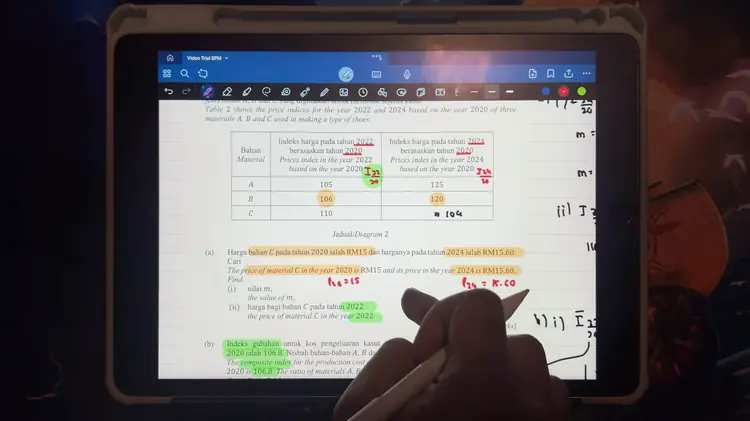 Video Trial SPM
Table 2 shows the price indices for the year 2022 and 2024 based on the year 2020 of three
materials A, B and C used in making a type of shoes.
Bahan
Material
Indeks harga pada tahun 2022
berasaskan tahun 2020
Prices index in the year 2022
based on the year 2020
I 22/20
Indeks harga pada tahun 2024
berasaskan tahun 2020
Prices index in the year 2024
based on the year 2020
I 24/20
A 105 125
B 106 120
C 110 = 104
Jadual/Diagram 2
(a) Harga bahan C pada tahun 2020 ialah RM15 dan harganya pada tahun 2024 ialah RM15.60
Cari
The price of material C in the year 2020 is RM15 and its price in the year 2024 is RM15.60.
Find.
P20 = 15
P24 = 15.60
(i) nilai m,
the value of m,
(ii) harga bagi bahan C pada tahun 2022.
the price of material C in the year 2022.
(b) Indeks gubahan untuk kos pengeluaran kasut
2020 ialah 106.8. Nisbah bahan-bahan A, B
The composite index for the production cost
2020 is 106.8. The ratio of materials A, B
m =
m=
ii) I
b) i) I